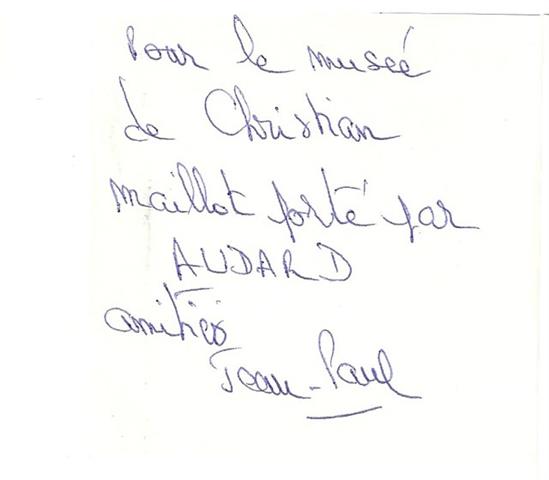 Pour le museé
de Christian
maillot porté par
AUDARD
amitiés
Jean-Paul